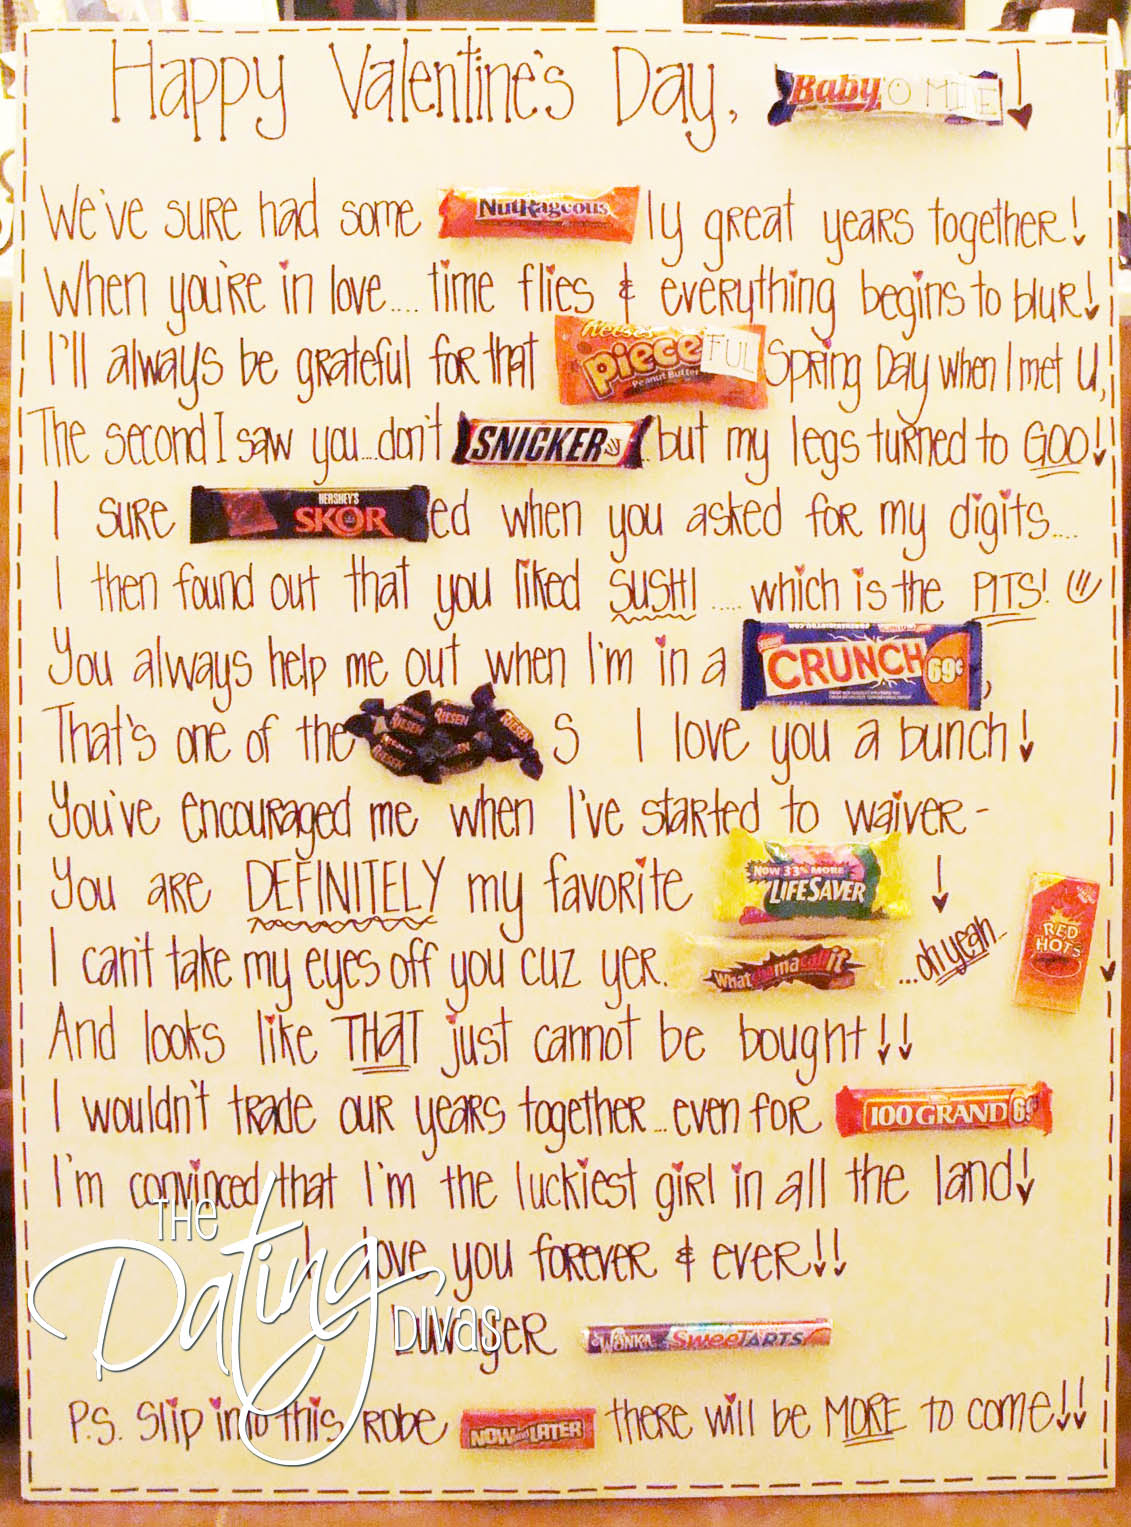 Happy Valentine's Day, Baby O MINE!
We've sure had some NutRageous ly great years together!
When you're in love.... time flies & everything begins to blur!
I'll always be grateful for that Reese's piece FUL Spring Day when I met U,
The second I saw you...don't SNICKER but my legs turned to GOO!
I sure HERSHEY'S SKOR ed when you asked for my digits....
I then found out that you liked SUSHI .... which is the PITS!
You always help me out when I'm in a CRUNCH 69¢,
That's one of the RIESEN s I love you a bunch!
You've encouraged me when I've started to waiver-
You are DEFINITELY my favorite NOW 33% MORE LIFESAVER !
I can't take my eyes off you cuz yer. Whatchamacallit ...oh yeah... RED HOTS !
And looks like THAT just cannot be bought!!
I wouldn't trade our years together...even for 100 GRAND 69¢
I'm convinced that I'm the luckiest girl in all the land!
I love you forever & ever!!
Luv, yer WONKA SWEETARTS
P.S. Slip into this robe NOW and LATER there will be MORE to come!!
THE Dating DIVAS